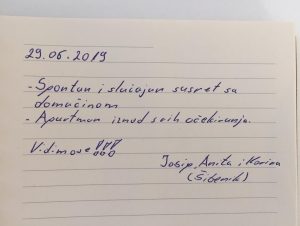 29.06.2019
- Spontan i slučajan susret sa
domaćinom
- Apartman iznad svih očekivanja.
Vidimo se!!!
Josip, Anita i Karina
(Šibenik)